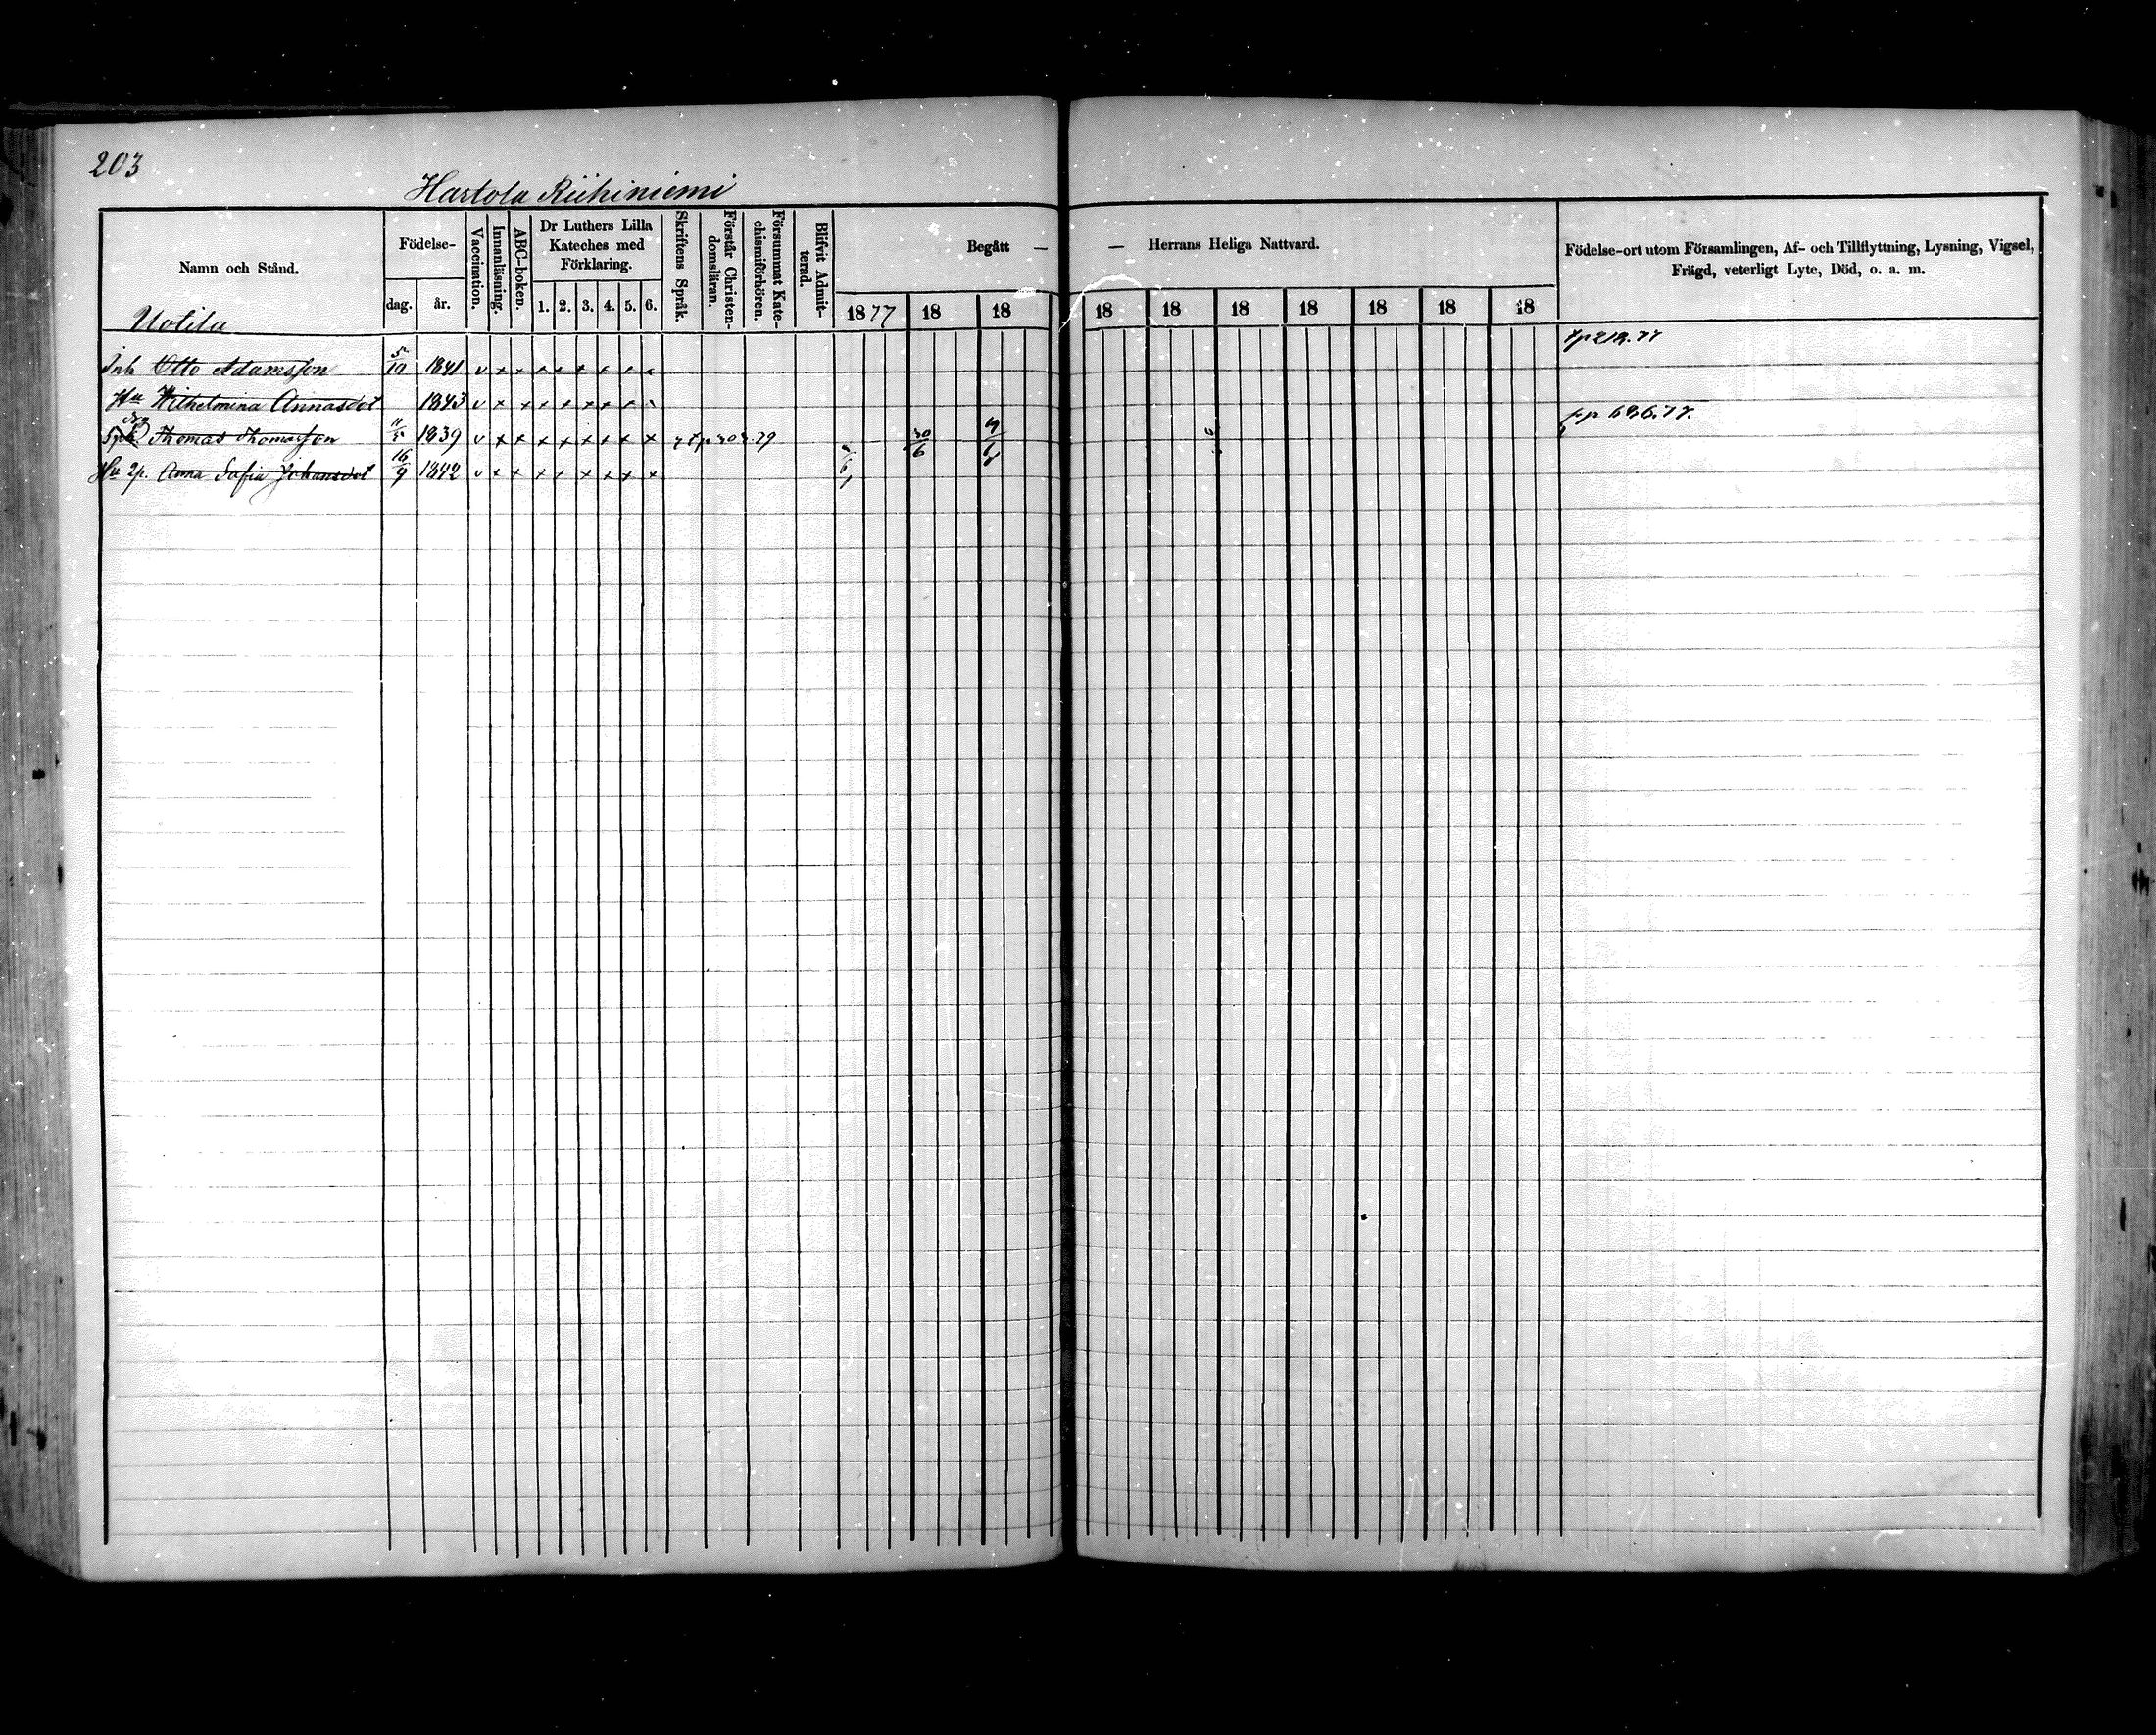 203
Hartola Riihiniemi
Namn och Stånd.
Födelse-
dag.
år.
Vaccination.
Innanläsning.
ABC-boken.
Dr Luthers Lilla
Kateches med
Förklaring.
1. 2. 3. 4. 5. 6.
Skriftens Språk.
Förstår Christen-
domsläran.
Försummat Kate-
chismiförhören.
Blifvit Admit-
terad.
Begått — — Herrans Heliga Nattvard.
1877 18 18 18 18 18 18 18 18 18
Födelse-ort utom Församlingen, Af- och Tillflyttning, Lysning, Vigsel,
Frägd, veterligt Lyte, Död, o. a. m.
Uotila
Inh Otto Adamsson 5/10 1841 v x x x x x x x x
Hu Wilhelmina Annasdot 1843 v x x x x x x x
Thomas Thomasson 11/5 1839 v x x x x x x x x 30/6 19/6
Hu 2g. Anna Sofia Johansdot 16/9 1842 v x x x x x x x x